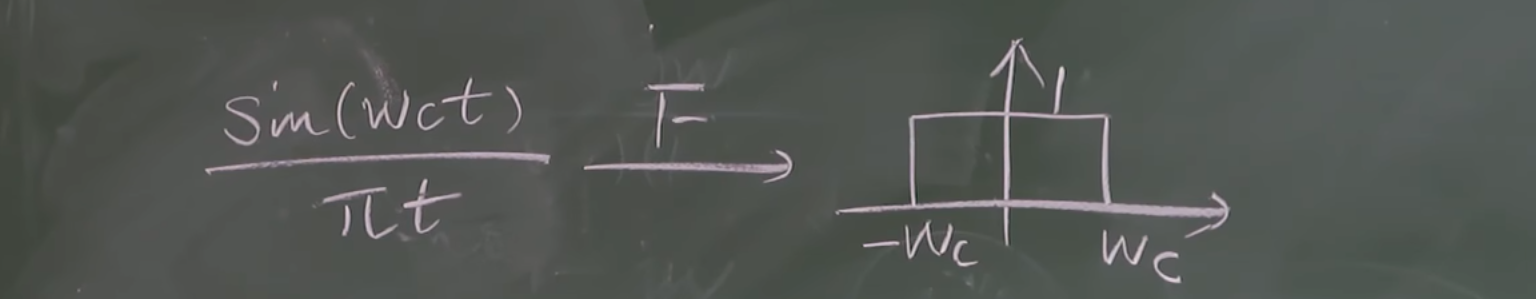 sin(wct)
πt
F
1
-wc
wc